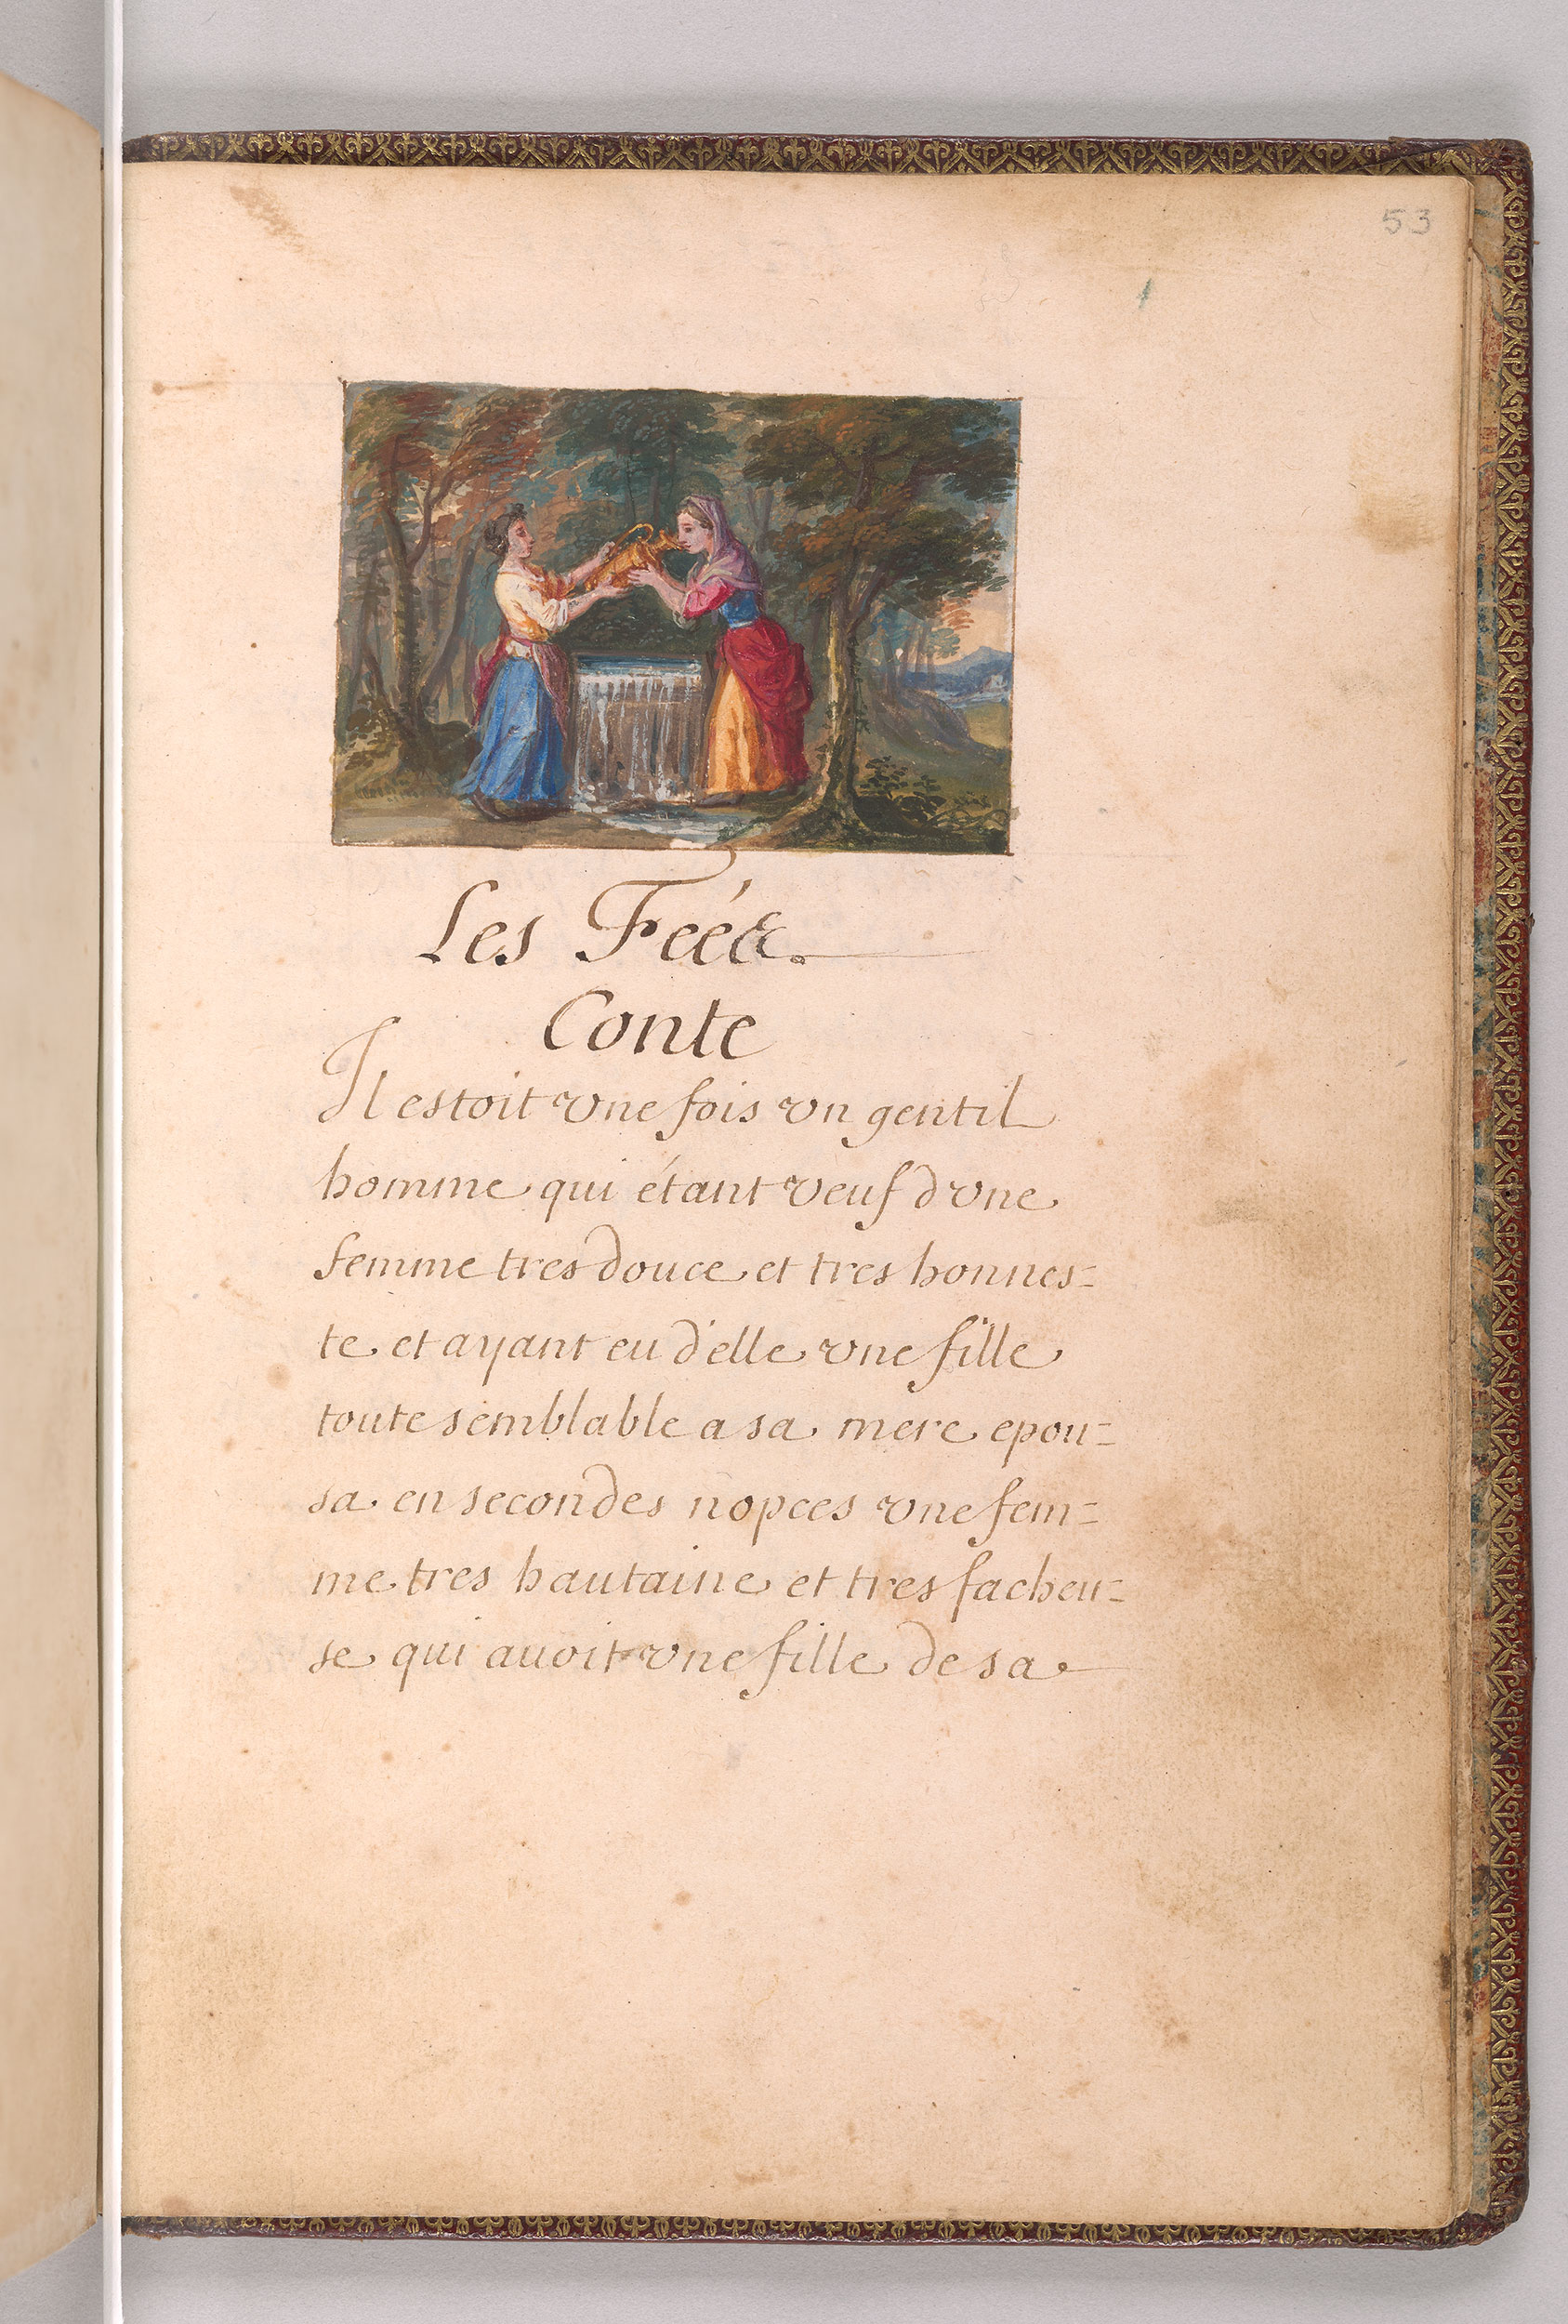 53
Les Fées.
Conte
Il estoit vne fois vn gentil
homme qui étant veuf dvne
femme tres douce et tres honnes=
te et ayant eu d'elle vne fille
toute semblable a sa mere epou=
sa en secondes nopces vne fem=
me tres hautaine et tres facheu=
se qui auoit vne fille de sa